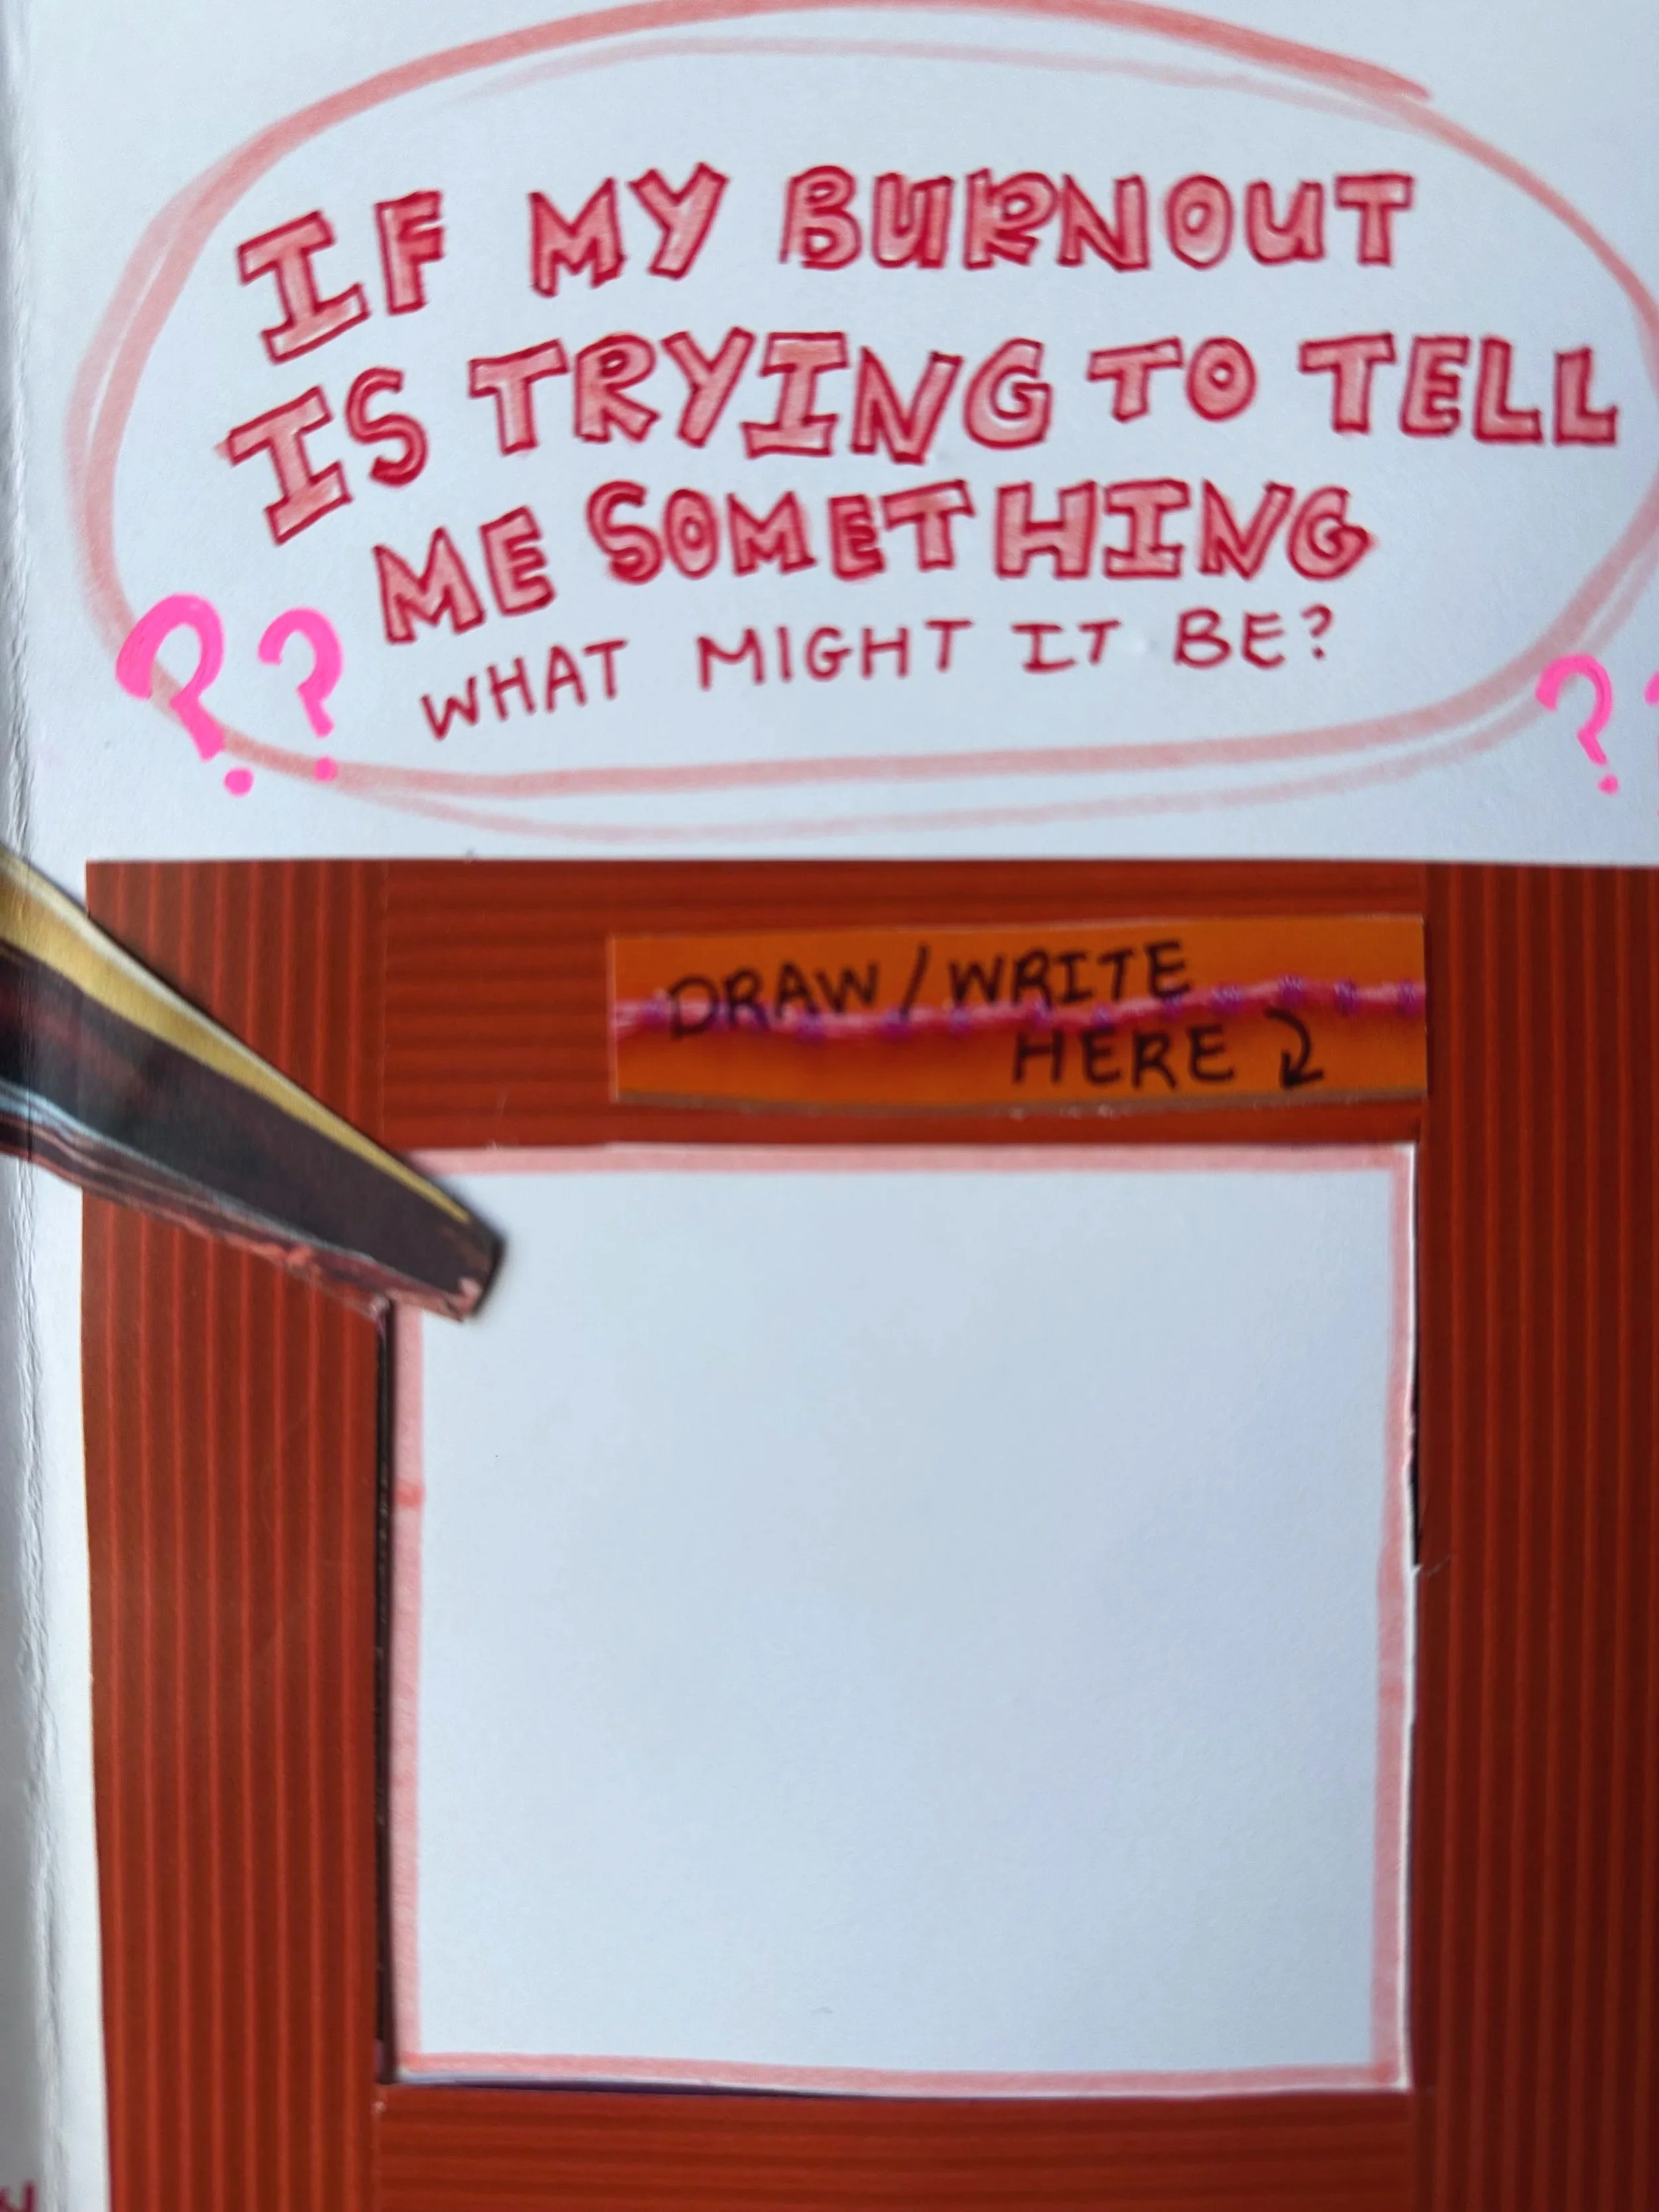 IF MY BURNOUT
IS TRYING TO TELL
ME SOMETHING
WHAT MIGHT IT BE?
? ?
?
DRAW / WRITE
HERE